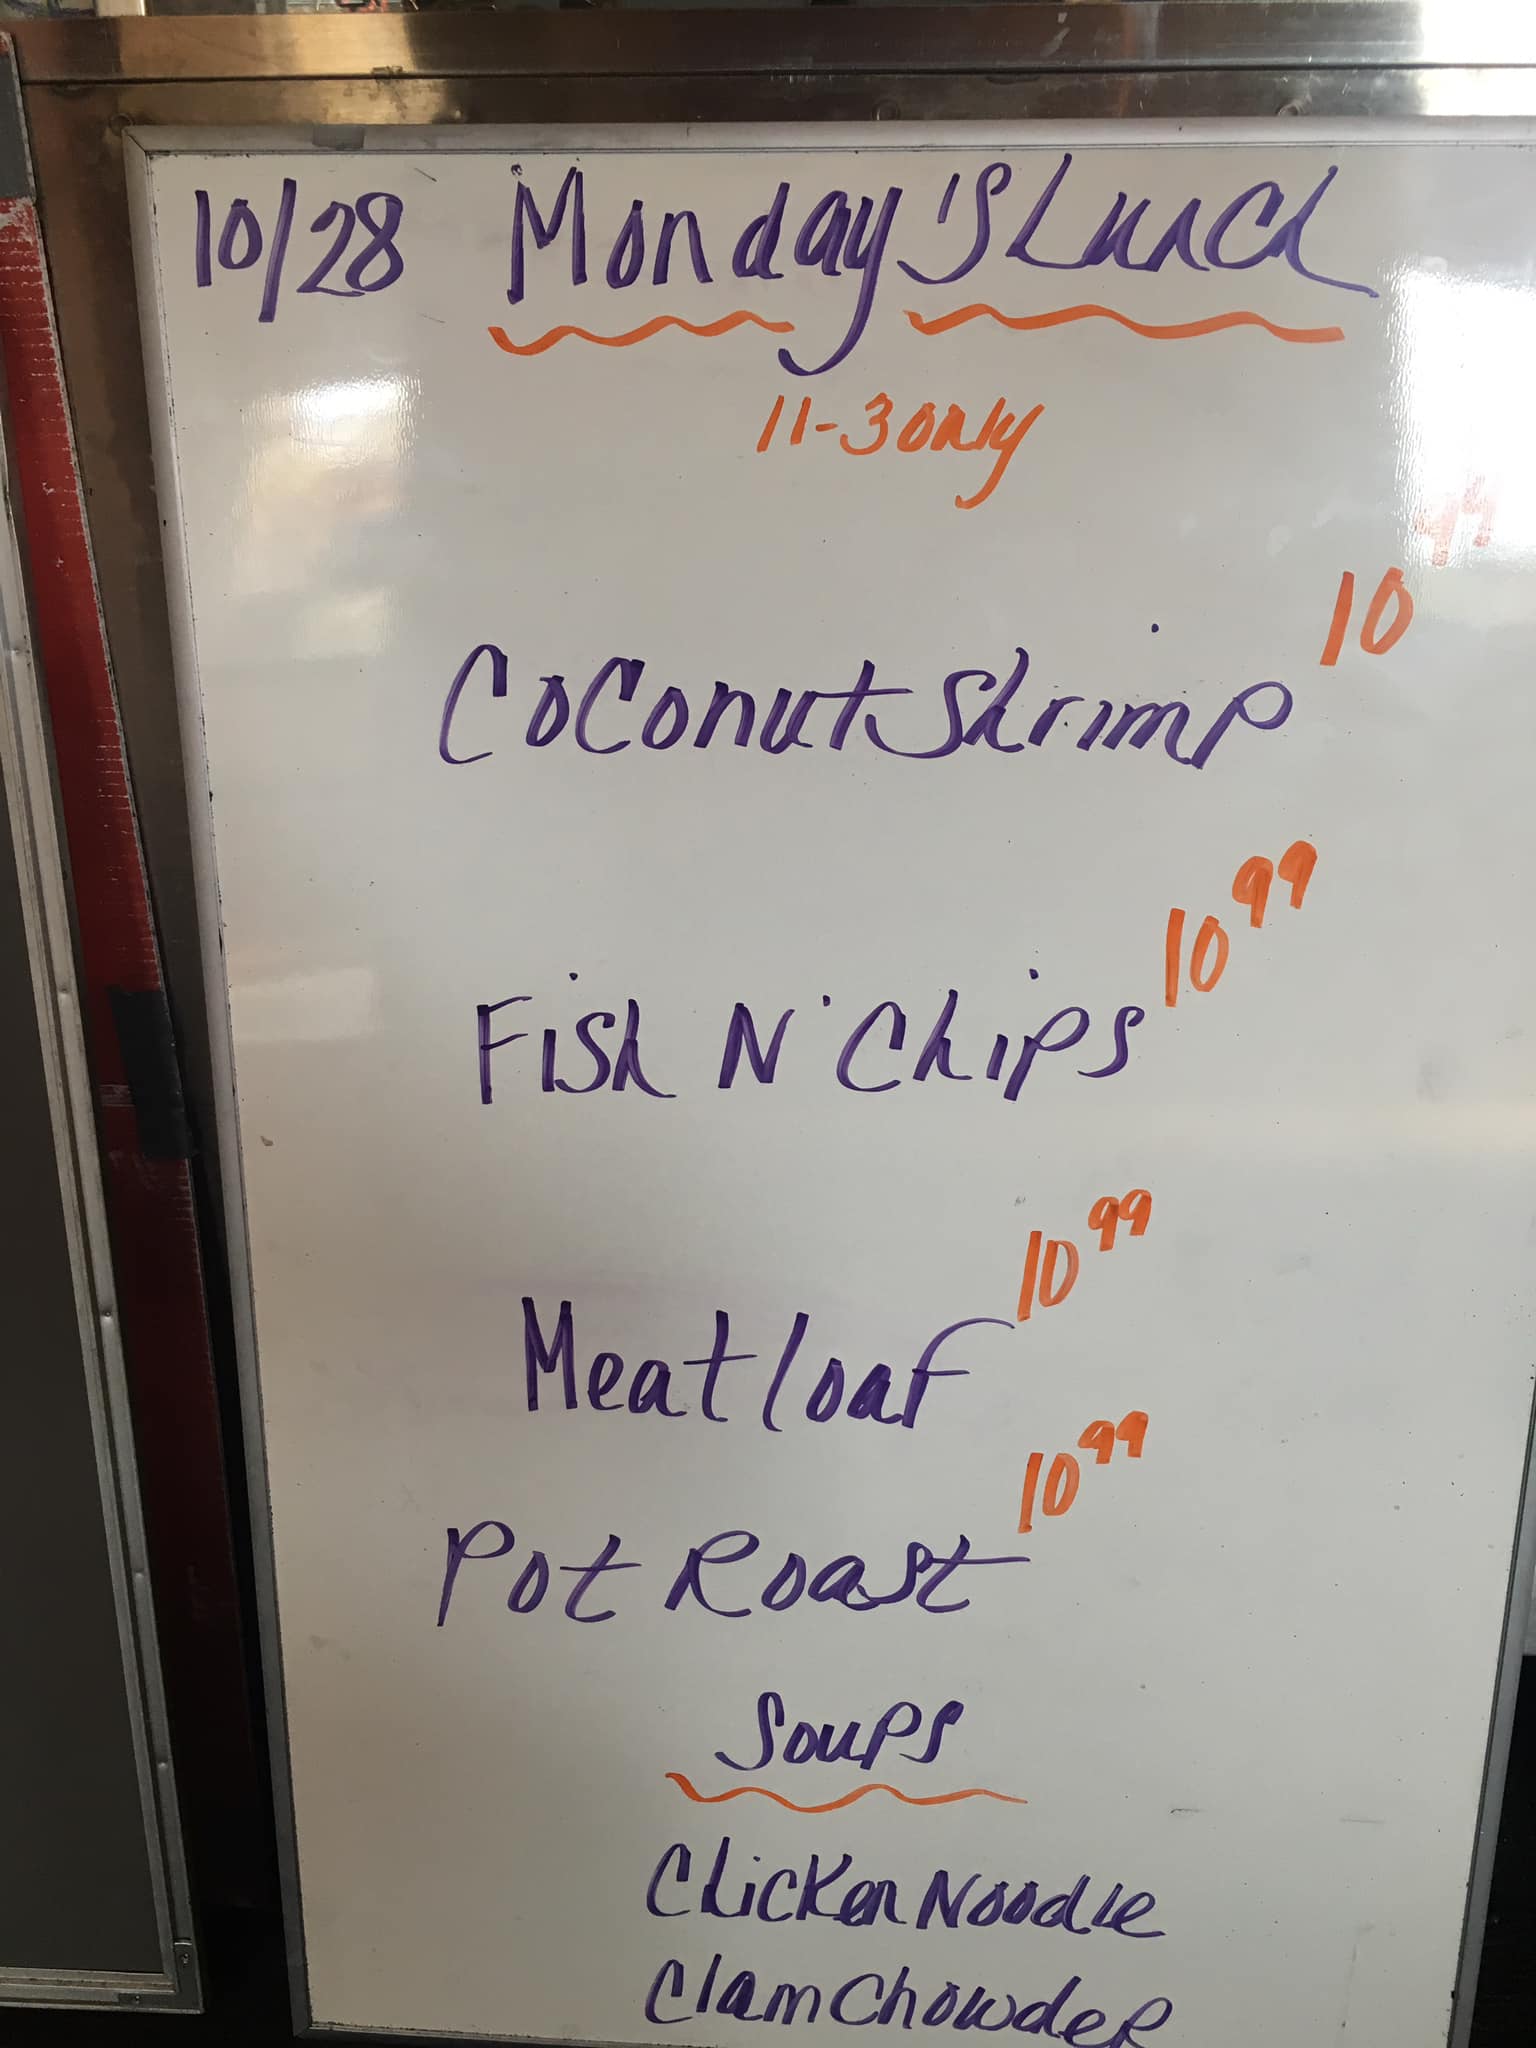 10/28 Monday's Lunch
11-3 only
Coconut Shrimp 10 99
Fish N' Chips 10 99
Meatloaf 10 99
Pot Roast 10 99
Soups
Chicken Noodle
Clam Chowder